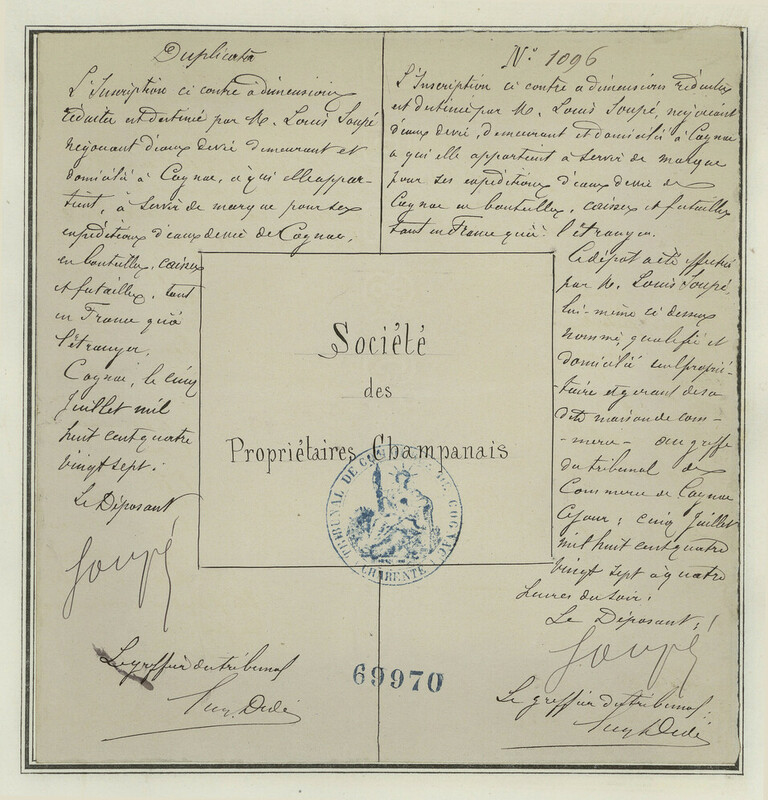 Duplicata
L'Inscription ci contre a dimensions
réduites est destinée par M. Louis Soupé
négociant d'eaux de vie demeurant et
domicilié à Cognac, à qui elle appar-
tient, à servir de marque pour ses
expéditions d'eaux de vie de Cognac,
en bouteilles, caisses
et futailles, tant
en France qu'à
l'étranger.
Cognac, le cinq
Juillet mil
huit cent quatre
vingt sept.
Le Déposant
Soupé
Le greffier du tribunal
N° 1096
L'Inscription ci contre a dimensions réduites
est destinée par M. Louis Soupé, négociant
d'eaux de vie, demeurant et domicilié à Cognac
a qui elle appartient à servir de marque
pour ses expéditions d'eaux de vie de
Cognac en bouteilles, caisses et futailles
tant en France qu'à l'étranger.
Ce dépôt a été effectué
par M. Louis Soupé,
lui-même ci dessus
nommé, qualifié et
domicilié seul proprié-
taire et gérant de sa
dite maison de com-
-merce - au greffe
du tribunal de
Commerce de Cognac
Ce jour, cinq Juillet
mil huit cent quatre
vingt sept à quatre
heures du soir.
Le Déposant,
Soupé
Le greffier du tribunal
Société
des
Propriétaires Champanais
TRIBUNAL DE COMMERCE DE COGNAC
CHARENTE
69970